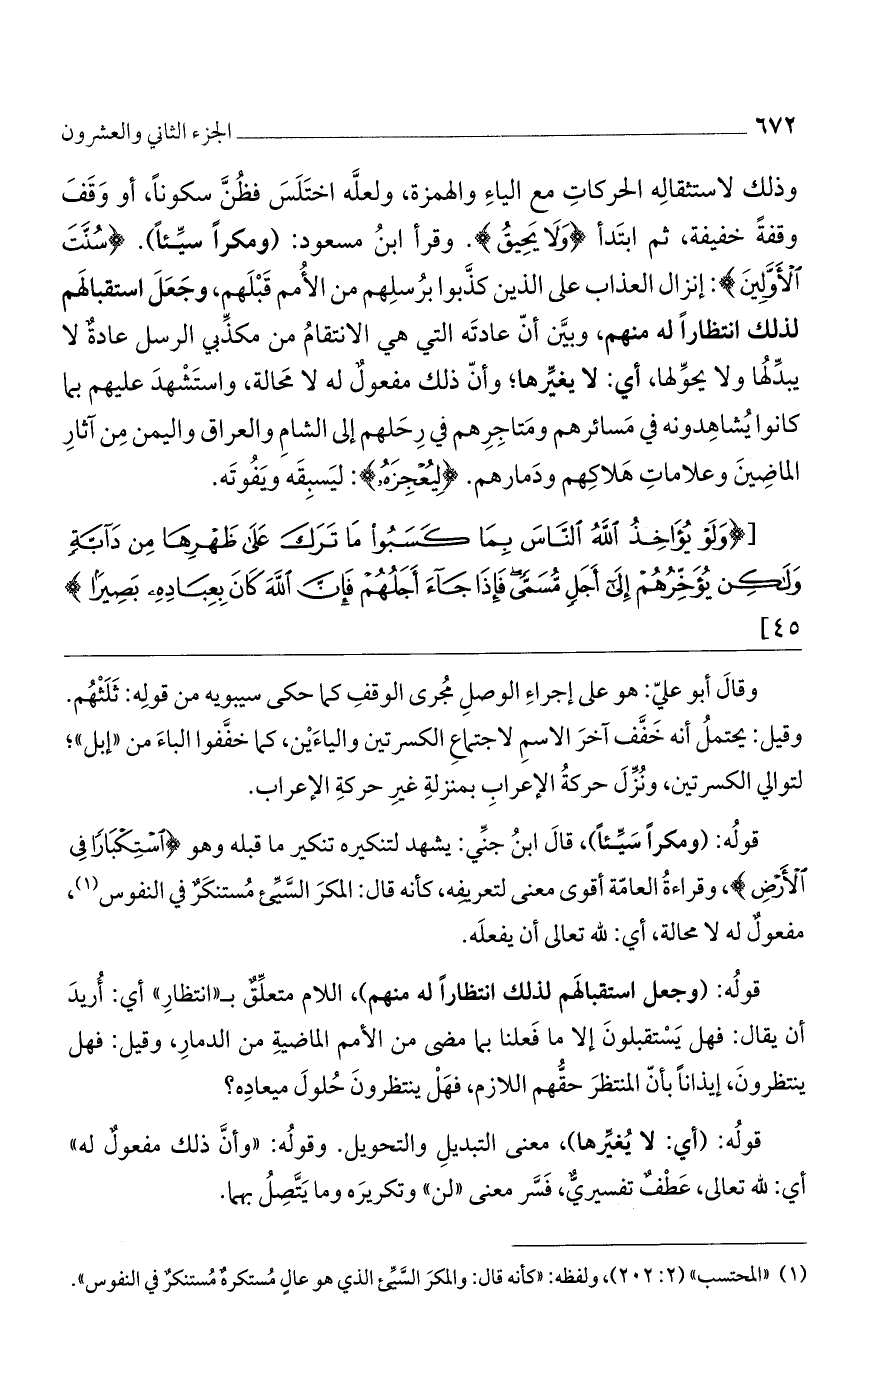 ٦٧٢ ــــــــــــــــــــــــــــــــــــــــ الجزء الثاني والعشرون
وذلك لاستثقالِه الحركاتِ مع الياءِ والهمزة، ولعلَّه اختَلَسَ فظُنَّ سكوناً، أو وَقَفَ
وقفةً خفيفة، ثم ابتَدأ ﴿وَلَا يَحِيقُ﴾. وقرأ ابنُ مسعود: (ومكراً سيِّئاً). ﴿سُنَّتَ
ٱلْأَوَّلِينَ﴾: إنزال العذاب على الذين كذَّبوا برُسلِهم من الأُمم قَبْلَهم، وجَعَلَ استقبالهَم
لذلك انتظاراً له منهم، وبيَّن أنّ عادتَه التي هي الانتقامُ من مكذِّبي الرسل عادةٌ لا
يبدِّلُها ولا يحوِّلها، أي: لا يغيِّرها؛ وأنّ ذلك مفعولٌ له لا مَحالة، واستَشْهدَ عليهم بما
كانوا يُشاهِدونه في مَسائرهم ومَتاجِرِهم في رِحَلهم إلى الشامِ والعراق واليمن مِن آثارِ
الماضِينَ وعلاماتِ هَلاكِهم ودَمارهم. ﴿لِيُعْجِزَهُۥ﴾: ليَسبِقَه ويَفُوتَه.
[﴿وَلَوْ يُؤَاخِذُ ٱللَّهُ ٱلنَّاسَ بِمَا كَسَبُوا۟ مَا تَرَكَ عَلَىٰ ظَهْرِهَا مِن دَآبَّةٍ
وَلَٰكِن يُؤَخِّرُهُمْ إِلَىٰٓ أَجَلٍ مُّسَمًّى ۖ فَإِذَا جَآءَ أَجَلُهُمْ فَإِنَّ ٱللَّهَ كَانَ بِعِبَادِهِۦ بَصِيرًۢا﴾
٤٥]
وقالَ أبو عليّ: هو على إجراءِ الوصلِ مُجرى الوقفِ كما حكى سيبويه من قولِه: ثَلَثْهُم.
وقيل: يحتملُ أنه خَفَّف آخرَ الاسمِ لاجتماعِ الكسرتين والياءَيْن، كما خفَّفوا الباءَ من «إبل»؛
لتوالي الكسرتين، ونُزِّلَ حركةُ الإعرابِ بمنزلةِ غيرِ حركةِ الإعراب.
قولُه: (ومكراً سَيِّئاً)، قالَ ابنُ جنِّي: يشهد لتنكيره تنكير ما قبله وهو ﴿ٱسْتِكْبَارًا فِى
ٱلْأَرْضِ﴾، وقراءةُ العامّة أقوى معنى لتعريفِه، كأنه قال: المكرَ السَّيِّئ مُستنكَرٌ في النفوس(١)،
مفعولٌ له لا محالة، أي: لله تعالى أن يفعلَه.
قولُه: (وجعل استقبالَهم لذلك انتظاراً له منهم)، اللام متعلِّقٌ بـ«انتظارِ» أي: أُريدَ
أن يقال: فهل يَسْتقبلونَ إلا ما فَعلنا بما مضى من الأمم الماضيةِ من الدمارِ، وقيل: فهل
ينتظرونَ، إيذاناً بأنّ المنتظرَ حقُّهم اللازم، فهَلْ ينتظرونَ حُلولَ ميعادِه؟
قولُه: (أي: لا يُغيِّرها)، معنى التبديلِ والتحويل. وقولُه: «وأنَّ ذلك مفعولٌ له»
أي: لله تعالى، عَطْفٌ تفسيريٌّ، فَسَّر معنى «لن» وتكريرَه وما يَتَّصِلُ بهما.
(١) «المحتسب» (٢: ٢٠٢)، ولفظه: «كأنه قال: والمكرَ السَّيِّئ الذي هو عالٍ مُستكرهٌ مُستنكرٌ في النفوس».